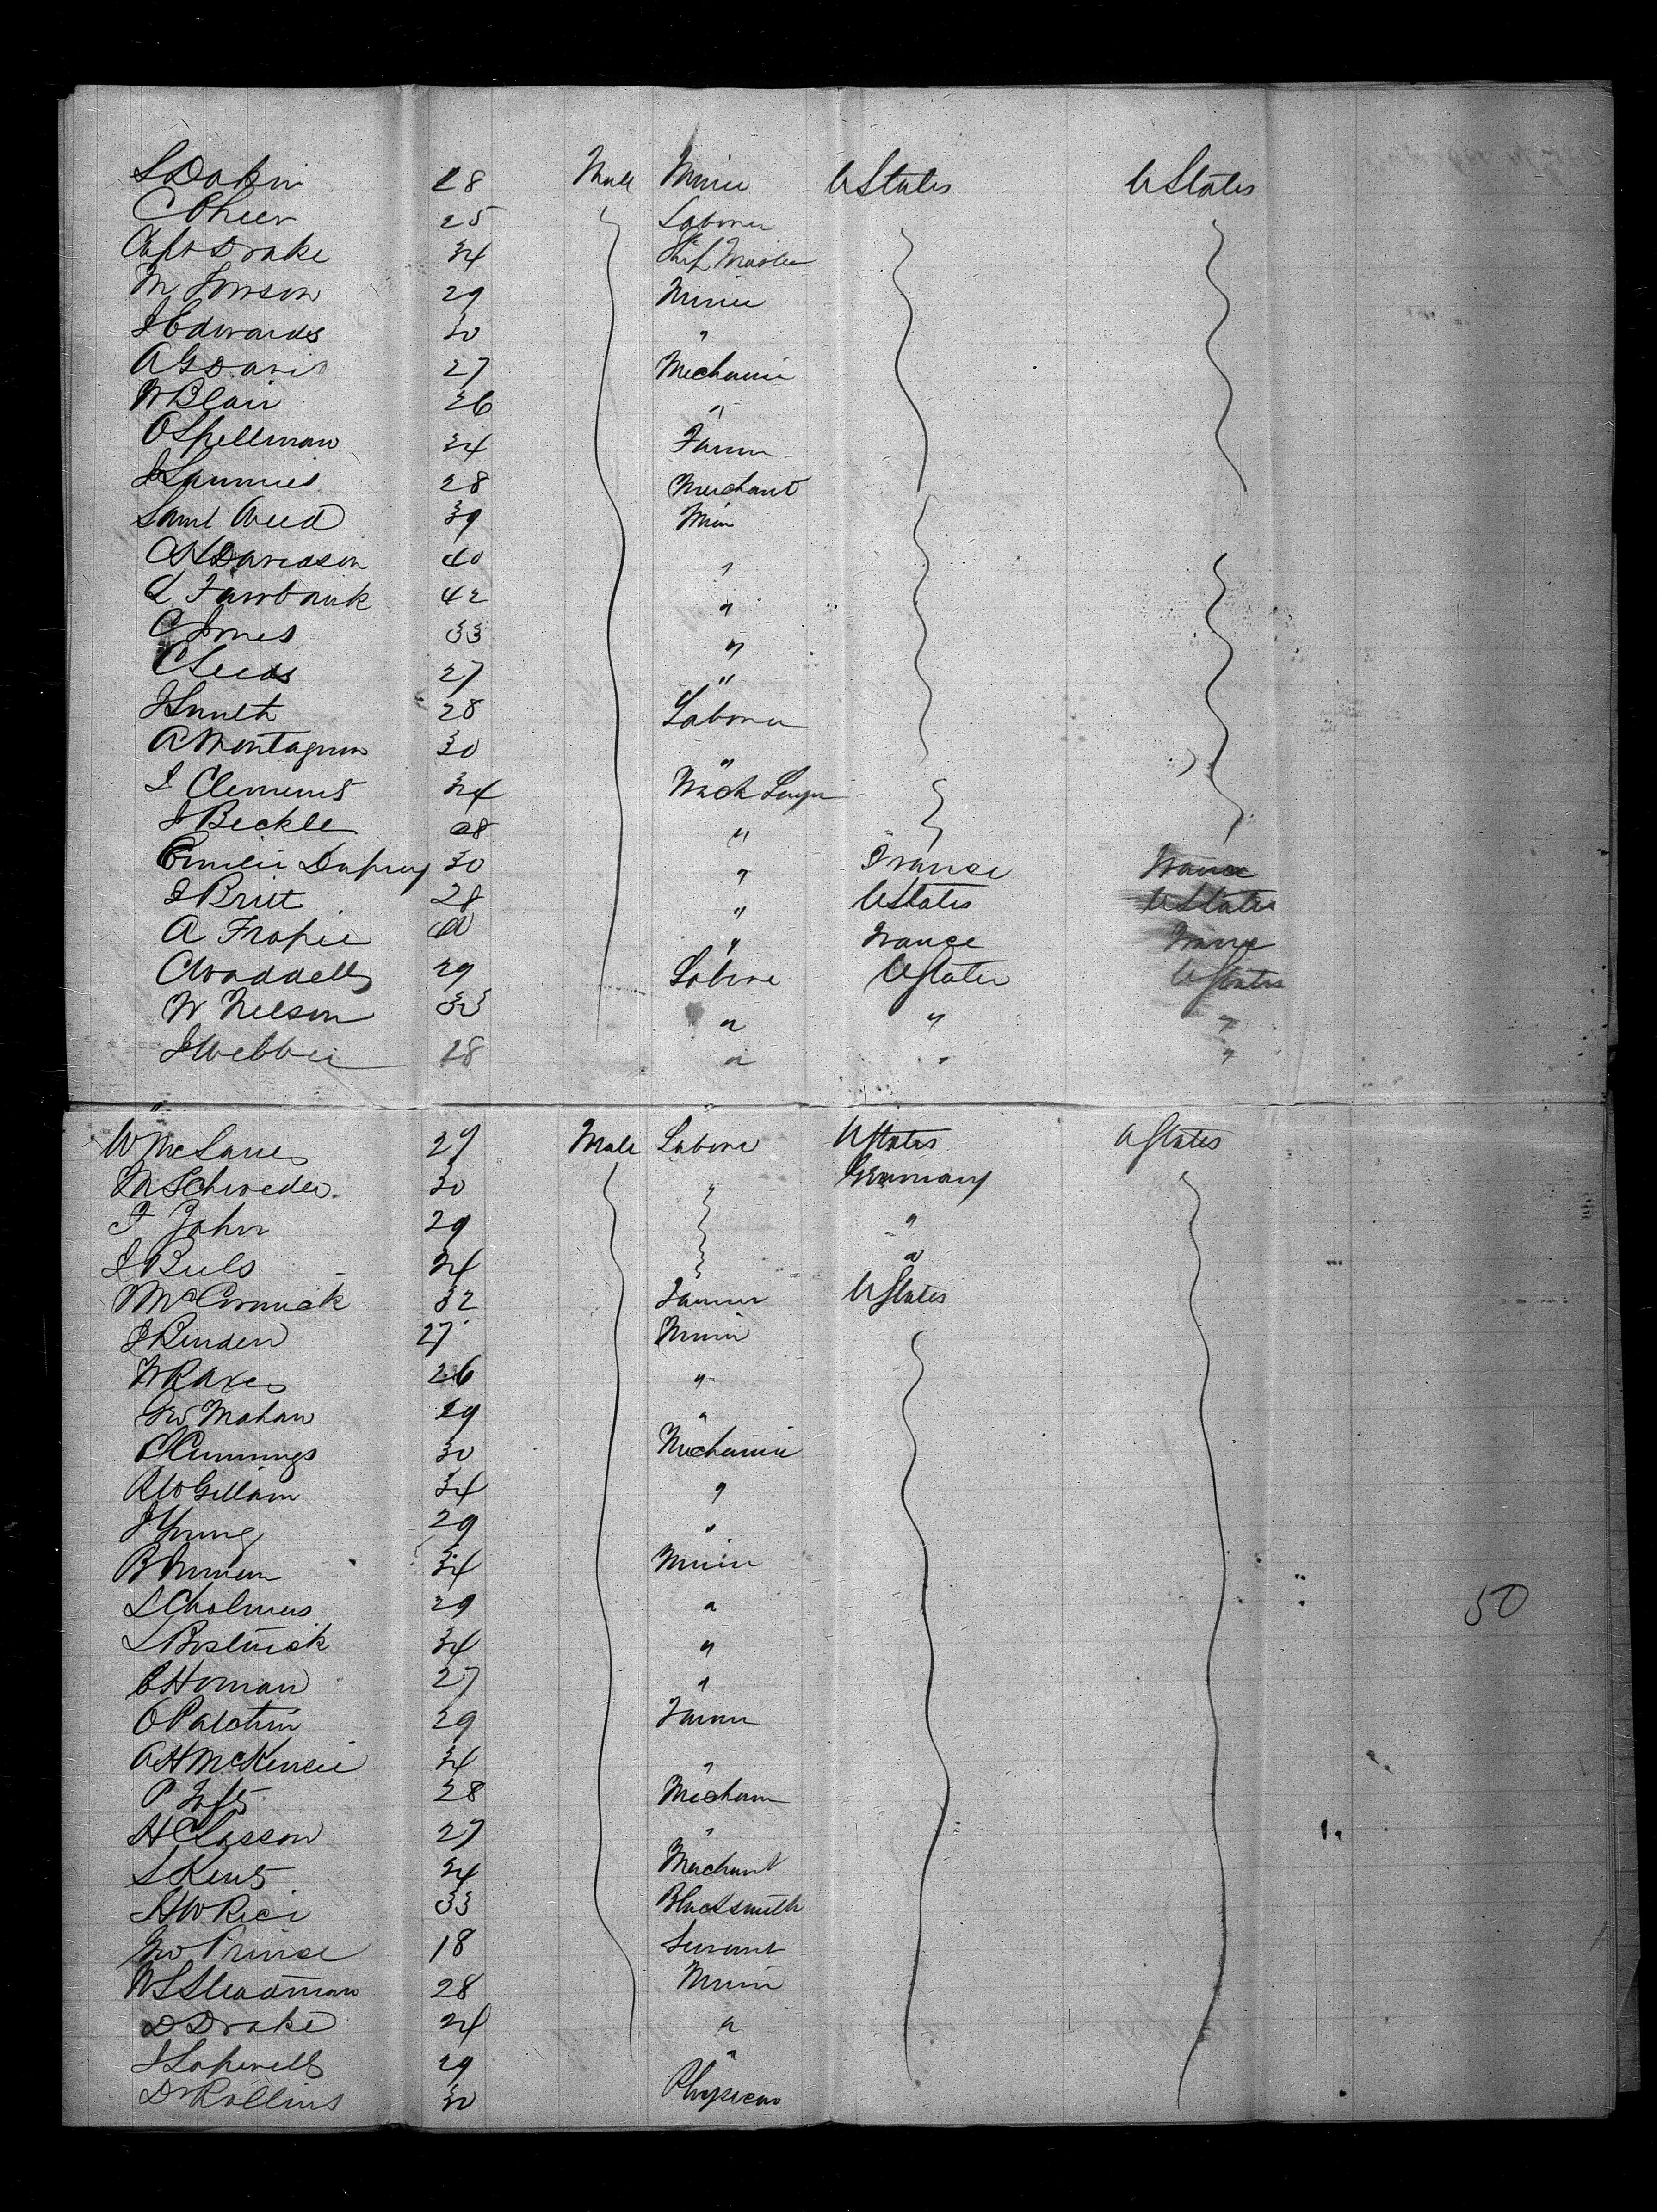 S Dakin 28 Male Miner U States U States
C Pheer 25 Laborer
Capt Drake 34 Ship Master
M Jonson 29 Miner
J Edwards 30 "
A G Davis 27 Mechanic
W Blair 26 "
O Spellman 34 Farmer
J Lammies 28 Merchant
Saml Weed 39 Min
C H Davidson 40 "
L Fairbank 42 "
C Jones 33 "
C Leeds 27 "
J Smith 28 Laborer
A Montagnon 30 "
J Clements 34 Mech
J Beckle 28 "
Emilie Dupuy 30 " France France
J Britt 28 " U States U States
A Tropie 40 " France France
C Waddell 29 Labore U States U States
W Nelson 33 " " "
J Webber 28 " " "
W McLane 29 Male Labore U States U States
M Schroeder 30 " Germany
F Zahn 29 "
J Buls 24 "
McCormick 32 Farmer U States
J Rinden 27 Minin
W R Axes 26 "
Geo Mahan 29 "
C Cummings 30 Mechanic
R W Gillam 34 "
J Young 29 "
B 34 Minin
S Cholmes 29 "
L Bostwick 34 "
E Homan 27 "
O Palctin 29 Farmer
A H McKenzie 34 "
P 28 Mechan
H Classon 27 "
S Kent 24 Merchant
H W Rice 33 Blacksmith
Geo Prince 18 Servant
W S Steadman 28 Minin
D Drake 24 "
J Lapewell 29 "
Dr Rollins 30 Physician
50